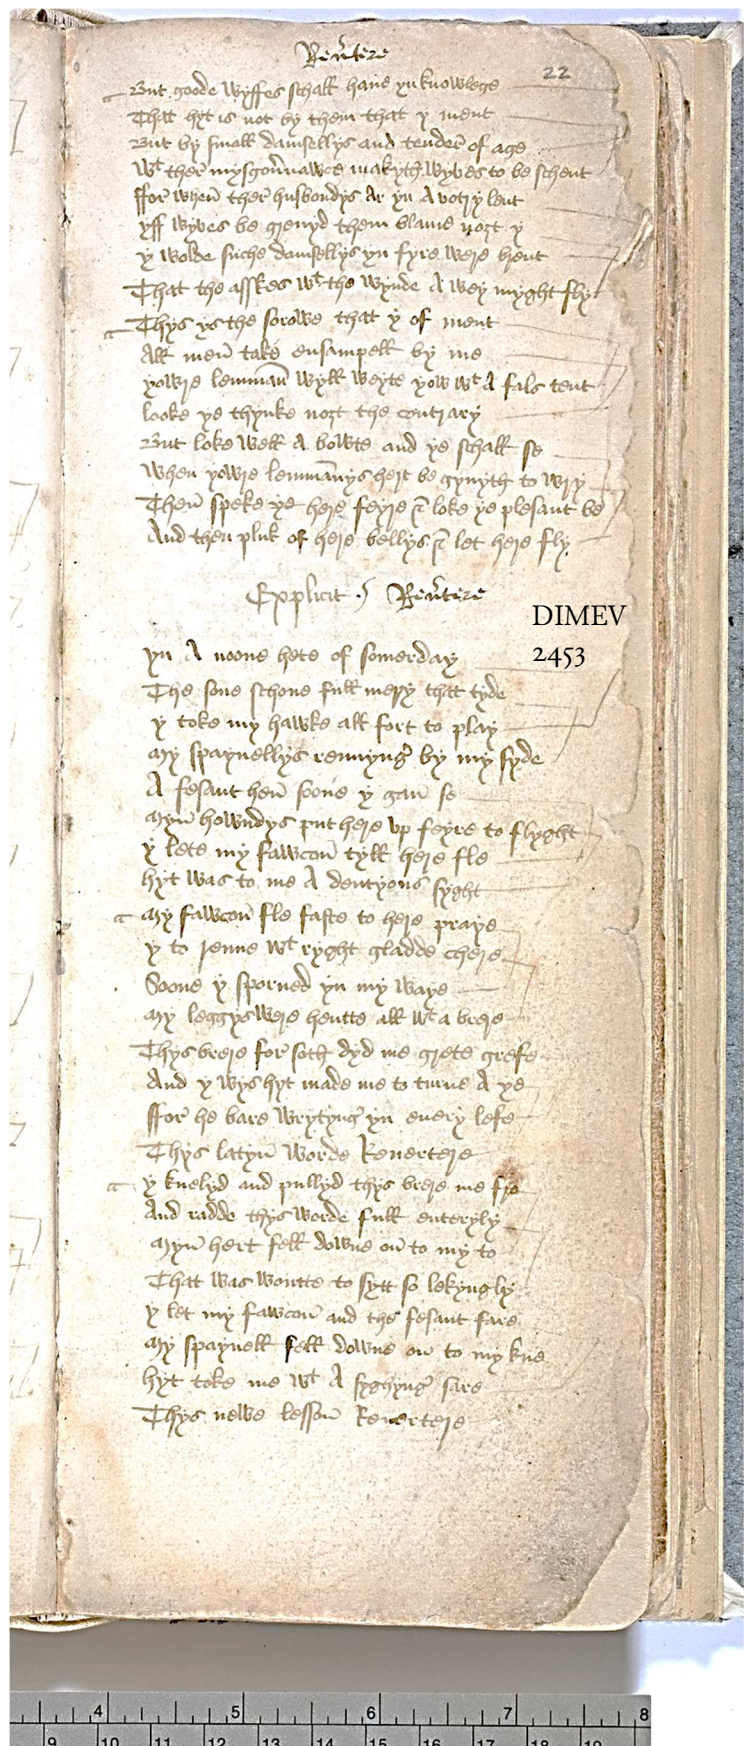 Reũtere
22
But goode wyffes schall haue yn knowlege
That hyt is not by them that y ment
But by small damsellys and tender of age
Wt ther mysgoũnawce makyth wyves to be schent
ffor when ther husbondys Ar yn A votry lent
yff wyves be grenyd them blame nort y
y wolde suche damsellys yn fyre were brent
That the asskes wt the wynde A wey myght fly
Thys ys the sorowe that y of ment
All men take ensampell by me
yowre lemman wyll weyte yow wt A fals tent
looke ye thynke nort the contrary
But loke well A bowte and ye schall se
When yowre lemmanys hert be gynyth to wry
Then speke ye here feyre & loke ye plesant be
And then pluk of here bellys & let here fly
Explicit Reũtere
DIMEV
2453
yn A noone hete of somerday
The sone schone full mery that tyde
y toke my hawke all fort to play
My spaynellys rennyng by my syde
A fesant hen soone y gan se
Myn howndys put here vp feyre to flyght
y lete my fawcon tyll here fle
hyt was to me A dentyous syght
My fawcon fle faste to here praye
y to renne wt ryght gladde chere
Soone y sporned yn my waye
My leggys were hentte all wt a brere
Thys brere for soth dyd me grete grefe
And y wys hyt made me to turne A ye
ffor he bare wrytyng yn euery lefe
Thys latyn worde Reuertere
y knelyd and pullyd thys brere me fro
And radde thys worde full enteryly
Myn hert fell downe on to my to
That was wontte to sytt so lekyngly
y let my fawcon and the fesant fare
My spaynell fell downe on to my kne
hyt toke me wt A syghyng sare
Thys newe lesson Reuertere
4 5 6 7 8
9 10 11 12 13 14 15 16 17 18 19